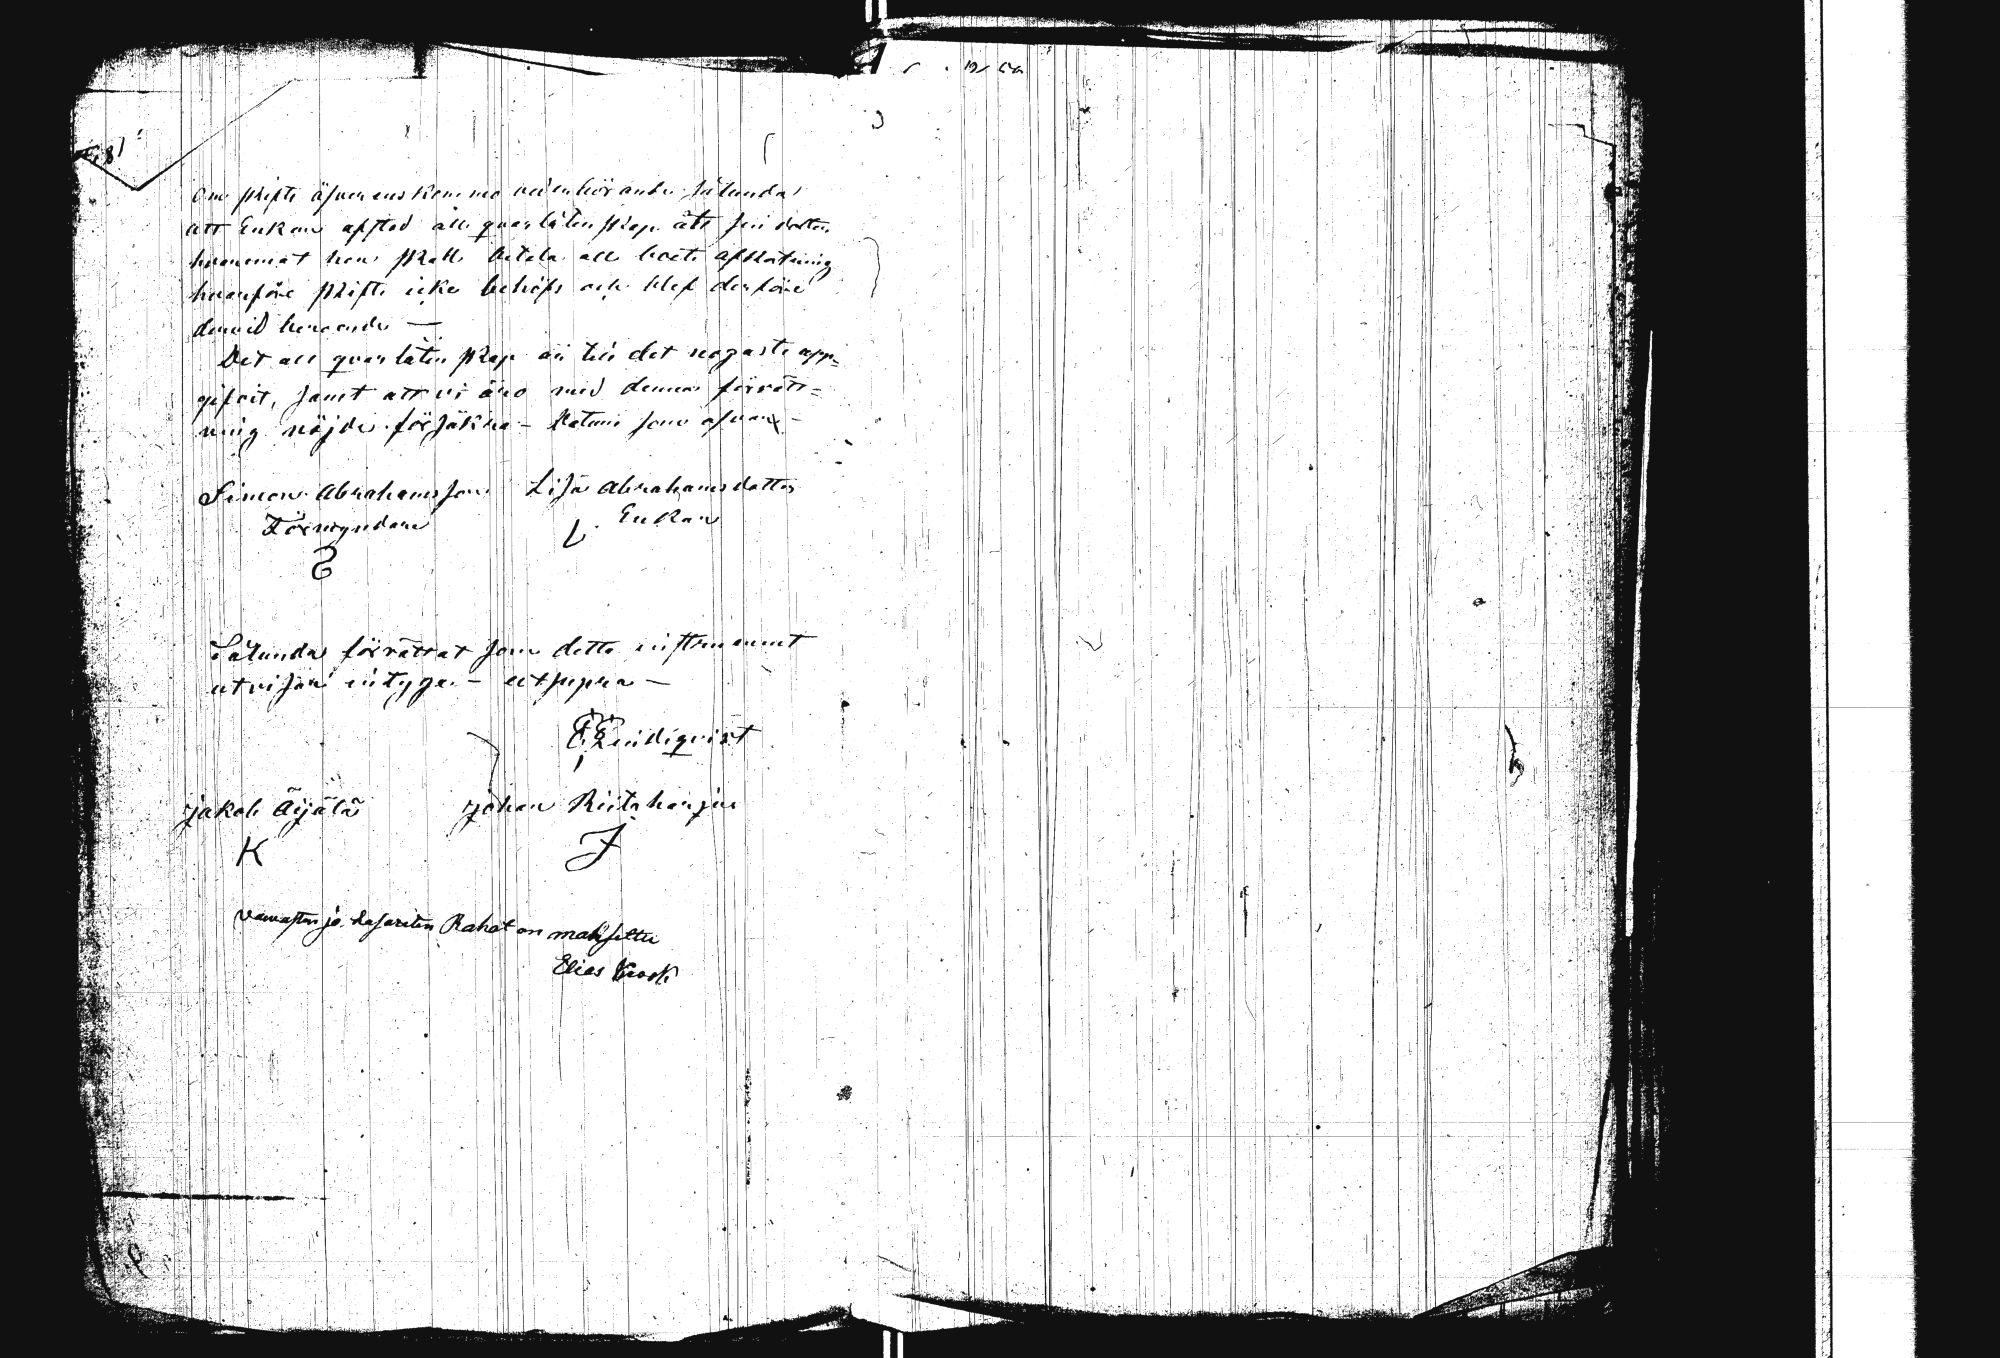 Om skifte äfverenskommo vederbörande sålunda,
att Enkan afstod all qvarlåtenskap åt sin dotter
hvaremot hon skall betala all boets afkortning
hvarföre skifte icke behöfs och blef derföre
dervid beroende —
Det all qvarlåtenskap är till det nogaste upp=
gifvit, samt att vi äro med denna förrätt=
ning nöjde försäkra — Datum som ofvan —
Simon Abrahamsson Lisa Abrahamsdotter
Förmyndare Enkan
S L
Sålunda förrättat som detta instrument
utvisar intyga — utsupra —
Lindqvist
Jakob Äijälä Johan Riitaharju
K J
ja Rahat on maksettu
Elias